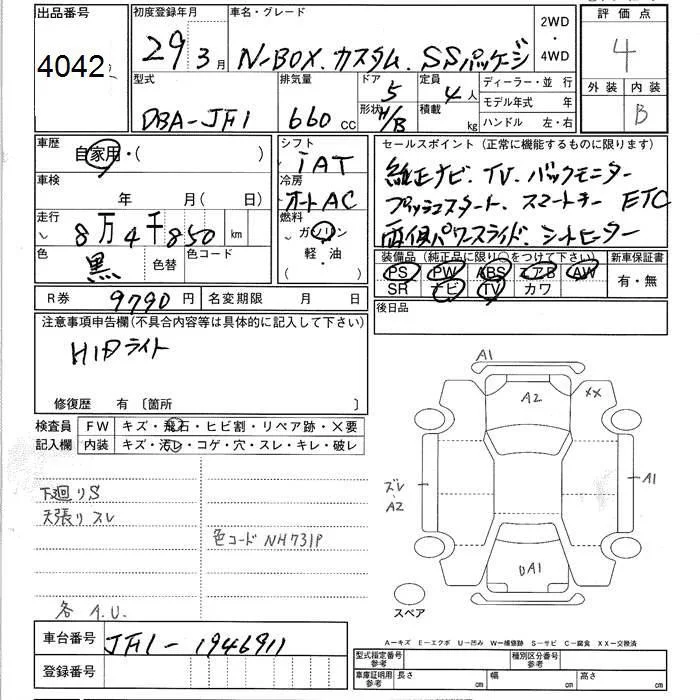 出品番号 初度登録年月 車名・グレード 2WD・4WD 評価点
4042 29 3月 N-BOX カスタム SSパッケージ 4
型式 排気量 ドア 定員 ディーラー・並行 外装 内装
DBA-JF1 660cc 5 4人 モデル年式 年 B
形状 H/B 積載 kg ハンドル 左・右
車歴 自家用・( ) シフト iAT セールスポイント(正常に機能するものに限ります)
車検 年 月(日) 冷房 オートAC 純正ナビ. TV. バックモニター
プッシュスタート. スマートキー ETC
走行 8万4千850km 燃料 ガソリン 軽・油 両側パワースライド. シートヒーター
色 黒 色替 色コード ( ) 装備品(純正品に限り〇をつけて下さい) 新車保証書
PS PW ABS エアB AW 有・無
R券 9790円 名変期限 月 日 SR ナビ TV カワ
注意事項申告欄(不具合内容等は具体的に記入して下さい) 後日品
HIDライト
修復歴 有〔箇所 〕
検査員 FW キズ・飛石・ヒビ割・リペア跡・X要
記入欄 内装 キズ・汚レ・コゲ・穴・スレ・キレ・破レ
A1
A2 XX
ズレ A2 A1
下廻りS
天張りスレ
色コード NH731P
UA1
スペア
各 A.U.
A-キズ E-エクボ U-凹み W-補修跡 S-サビ C-腐食 XX-交換済
車台番号 JF1-1946911
型式指定番号 参考 種別区分番号 参考
登録番号 車庫証明用 参考 長さ cm 幅 cm 高さ cm